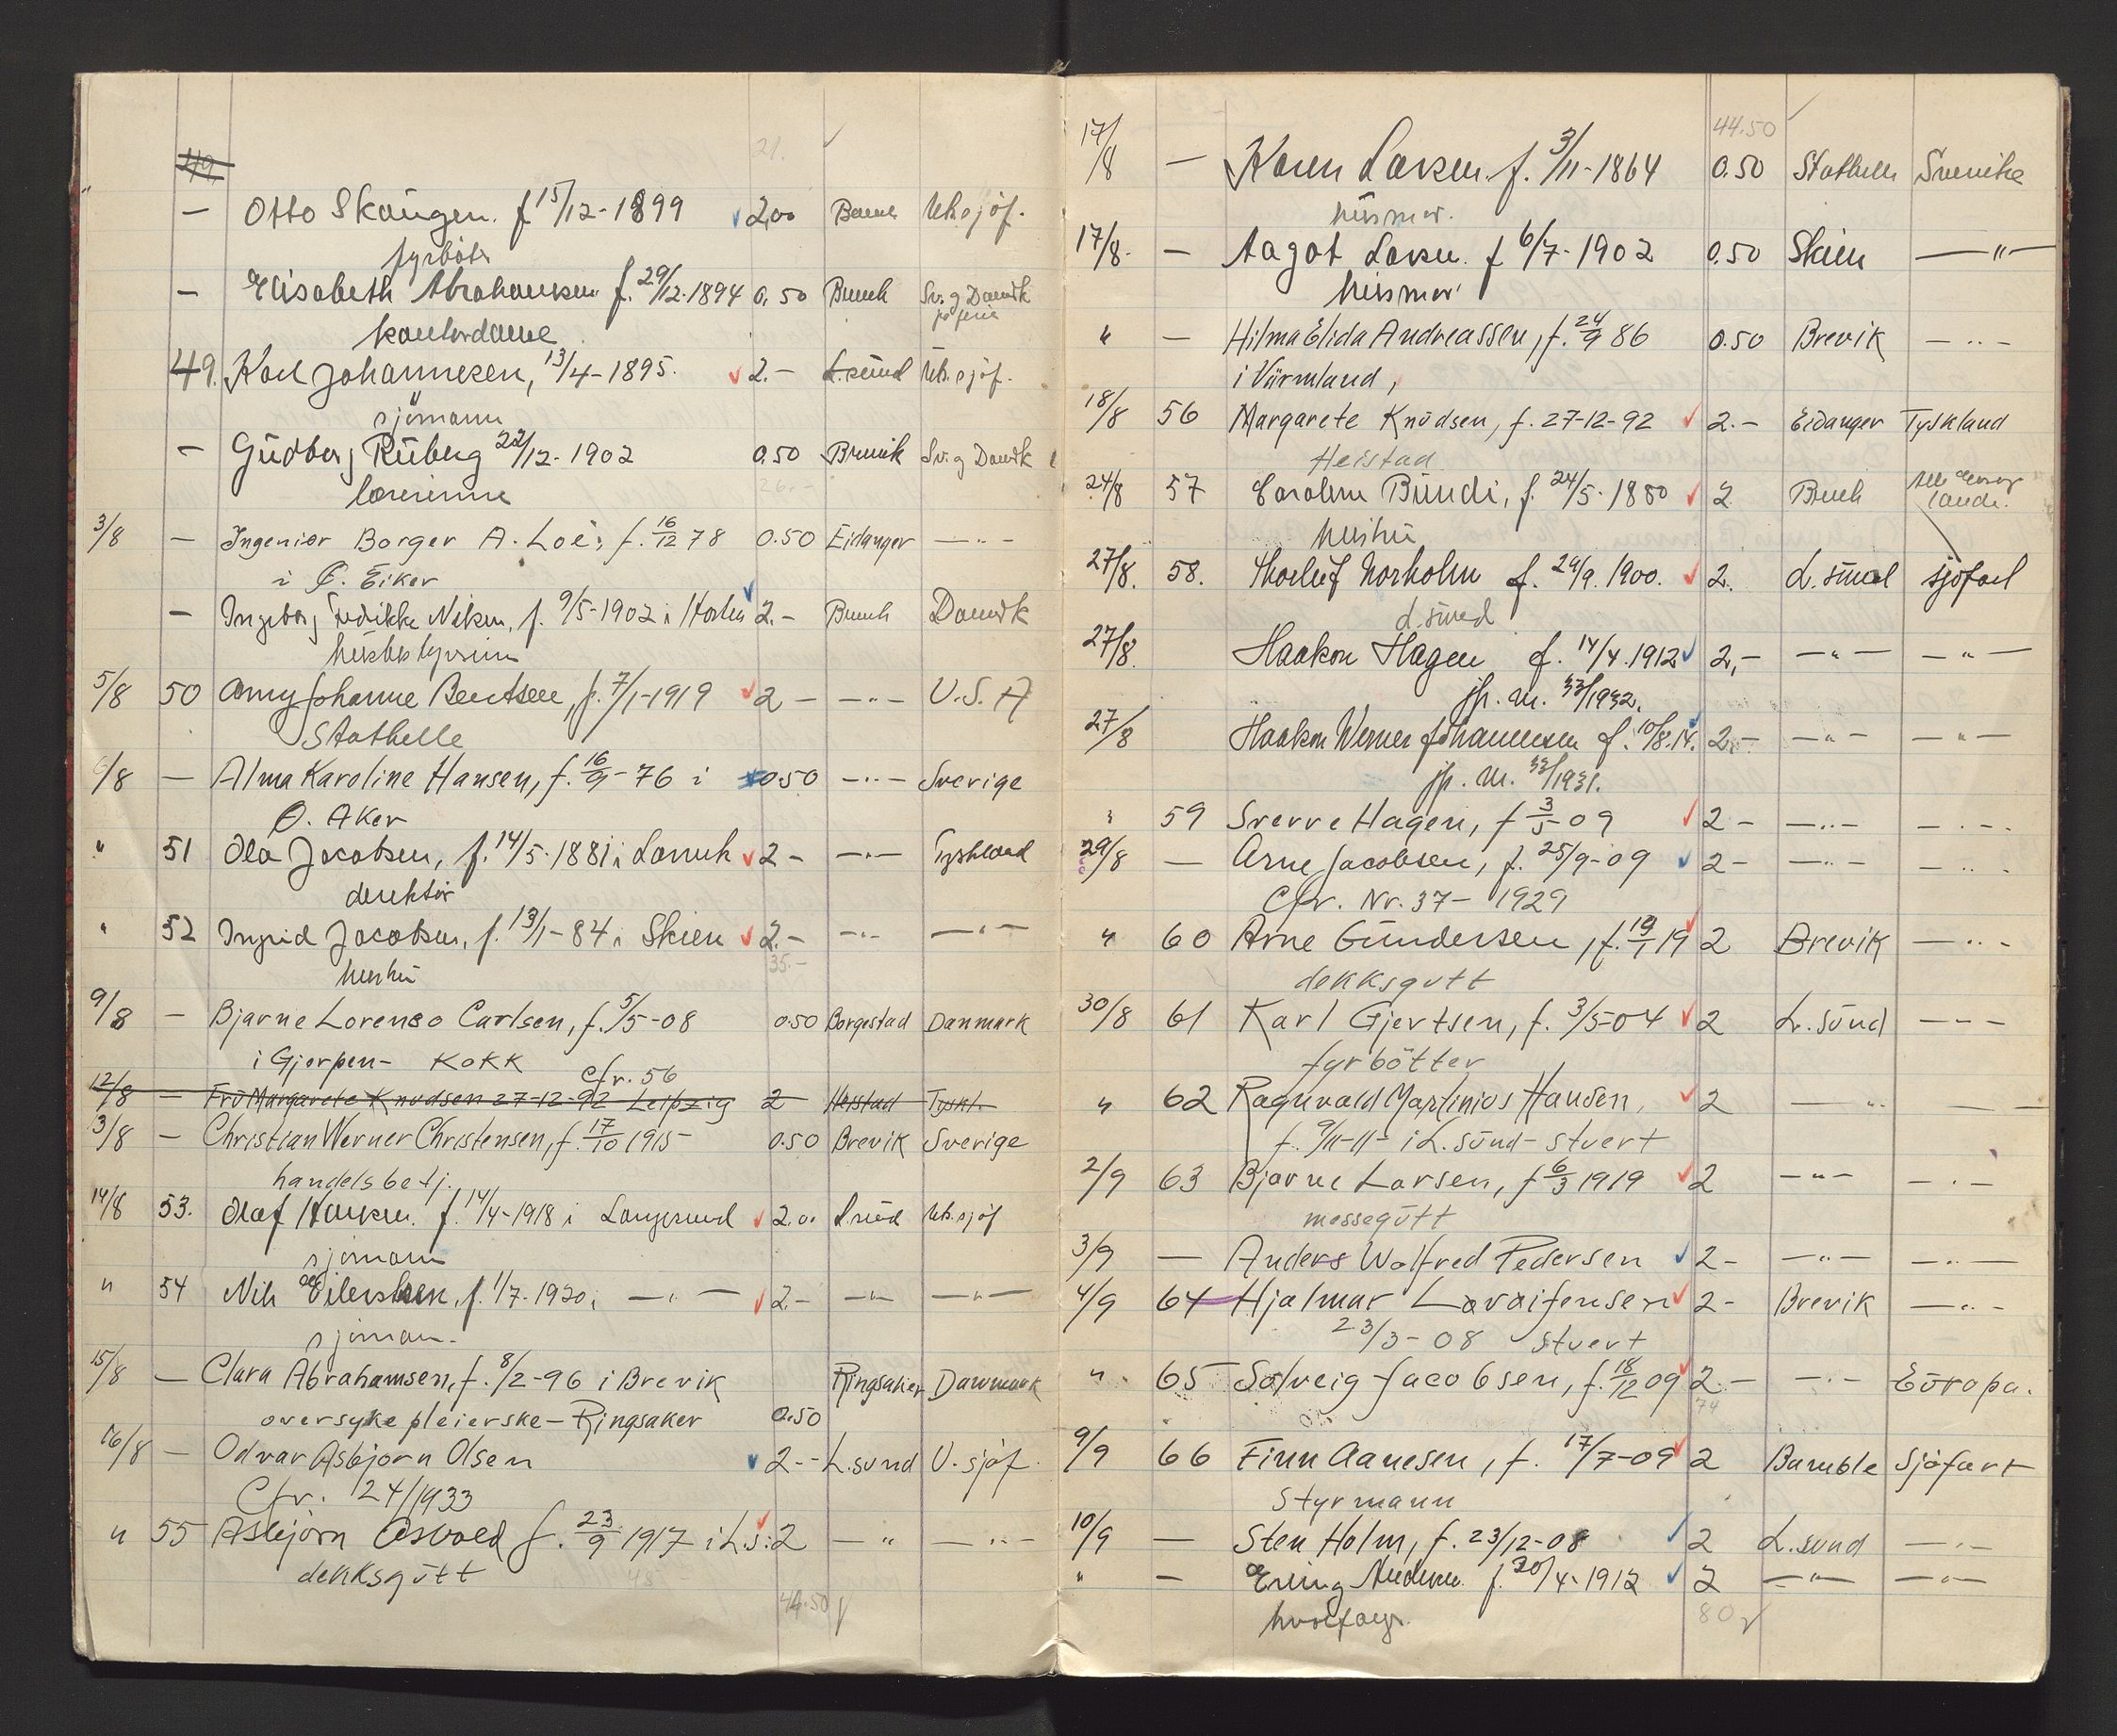 49.
21.
" — Otto Skaugen. f 15/12-1899 2,00 Utsjøf.
fyrbøter
— Elisabeth Abrahamsen f. 29/12-1894 0.50 Brevik Sv. og Danmk
på ferie
kontordame
49. Karl Johannesen, 13/4-1895. 2.- L.sund Uts.sjøf.
sjømann
— Gudborg Ruberg 22/12-1902 0.50 Brevik Sv. og Danmk
26.-
lærerinne
3/8 — Ingeniør Borger A. Loe, f. 16/12 78 0.50 Eidanger —"—
i Ø. Eiker
— Ingeborg Fredrikke Nilsen, f. 9/5-1902 i Horten 2.- Brevik Danmk
husbestyrerinne
5/8 50 Amy Johanne Bentsen, f. 7/1-1919 2 — —"— U.S.A
Stathelle
6/8 — Alma Karoline Hansen, f. 16/9-76 i 0.50 —"— Sverige
Ø. Aker
" 51 Ola Jacobsen, f. 14/5-1881 i Larvik 2- —"— Tyskland
direktør
" 52 Ingrid Jacobsen, f. 13/1-84 i Skien 2.- —"— —"—
35.-
hustru
9/8 — Bjarne Lorenso Carlsen, f. 5/5-08 0.50 Borgestad Danmark
i Gjerpen- Kokk cfr. 56
12/8 — Frü Margarete Knudsen 27-12-92 Leipzig 2 Heistad Tyskl.
3/8 — Christian Werner Christensen, f. 17/10 1915- 0.50 Brevik Sverige
handelsbetj.
14/8 53. Olaf Hansen. f. 14/4-1918 i Langesund 2.00 L.sund Uts.sjøf
sjømann
" 54 Nils Eilertsen, f. 1/7-1920 i —"— 2.- —"— —"—
sjømann.
15/8 — Clara Abrahamsen, f. 8/2-96 i Brevik Ringsaker Danmark
oversykepleierske - Ringsaker 0.50
16/8 — Odvar Asbjørn Olsen 2.- L.sund U.sjøf.
Cfr. 24/1933
" 55 Asbjørn Åsvold f. 23/9 1917 i L.s: 2 —"— —"—
dekksgutt 48
44.50
44.50
17/8 — Karen Larsen f. 3/11-1864 0.50 Stathelle Sverike
husmor.
17/8. — Aagot Larsen. f 6/7-1902 0.50 Skien —"—
husmor
" — Hilma Elida Andreassen, f. 24/9 86 0.50 Brevik —"—
i Värmland,
18/8 56 Margarete Knüdsen, f. 27-12-92 2.- Eidanger Tyskland
Heistad
24/8 57 Caroline Bundi, f. 24/5-1880 2 Brevik
hustru
27/8. 58. Thorleif Norholm f. 29/9. 1900. 2. L.sund sjøfart
L.sund
27/8. Haakon Hagen f. 14/4.1912 2,- —"— —"—
jfr. nr. 33/1932.
27/8 Haakon Werner Johannesen f. 10/8.14. 2.- —"— —"—
jfr. nr. 33/1931.
" 59 Sverre Hagen, f 3/5-09 2- —"— —"—
29/8 — Arne Jacobsen, f. 25/9-09 2- —"— —"—
Cfr. Nr. 37- 1929
" 60 Arne Gundersen, f. 19/1 19 2 Brevik —"—
dekksgutt
30/8 61 Karl Gjertsen, f. 3/5-04 2 L.sund —"—
fyrbötter
" 62 Ragnvald Martinius Hansen, 2 —"— —"—
f. 9/11-11- i L.sünd- stuert
2/9 63 Bjarne Larsen, f 6/3 1919 2 —"— —"—
messegütt
3/9 — Anders Wolfred Pedersen 2- —"— —"—
4/9 64 Hjalmar Lavaifensen 2- Brevik —"—
23/3-08 stuert
" 65 Solveig Jacobsen, f. 18/12 09 2.- —"— Europa.
74
9/9 66 Finn Aanesen, f. 17/7-09 2 Bamble Sjøfart
Styrmann
10/9 — Sten Holm, f. 23/12-08 2 L.sund —"—
" — Erling f. 20/4-1912 2 —"— —"—
hvalfanger.
80